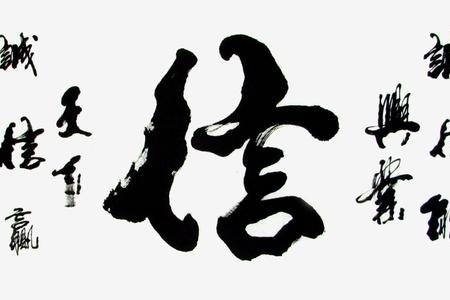 誠信能
興業
信
誠信贏
天下